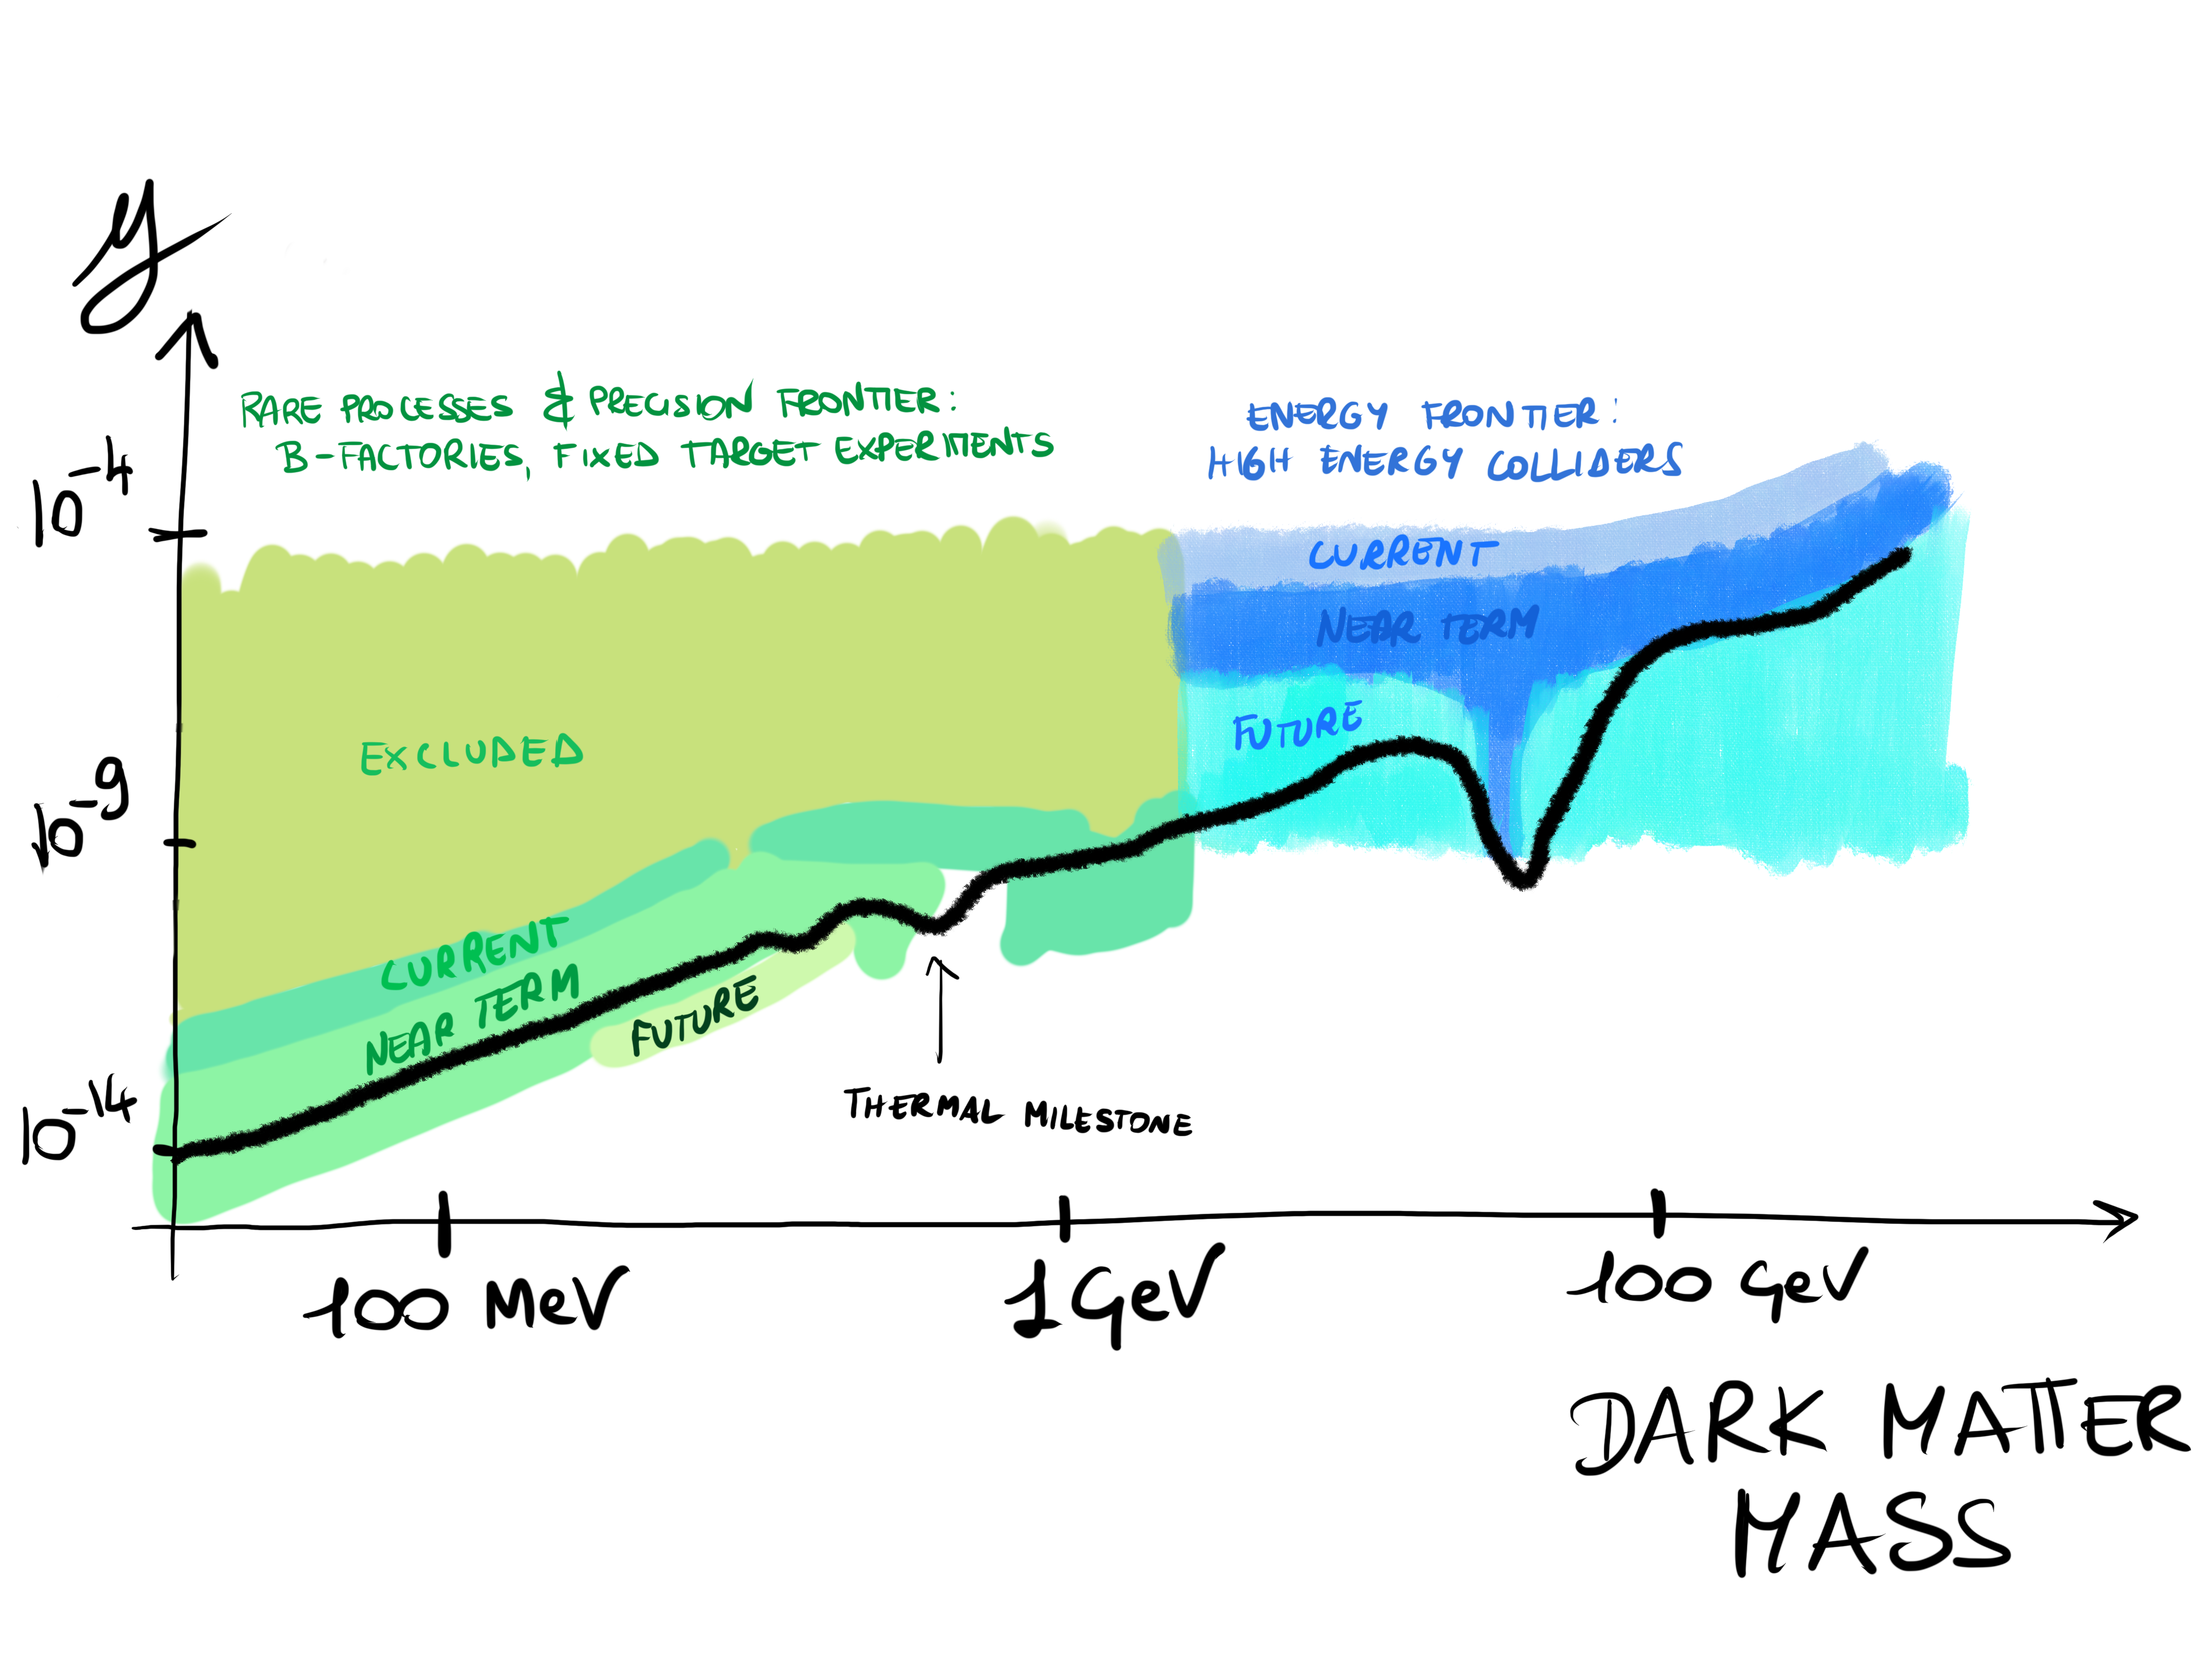 y
RARE PROCESSES & PRECISION FRONTIER:
B-FACTORIES, FIXED TARGET EXPERIMENTS
ENERGY FRONTIER:
HIGH ENERGY COLLIDERS
10^-4
CURRENT
NEAR TERM
FUTURE
EXCLUDED
10^-9
CURRENT
NEAR TERM
FUTURE
THERMAL MILESTONE
10^-14
100 MeV
1 GeV
100 GeV
DARK MATTER
MASS